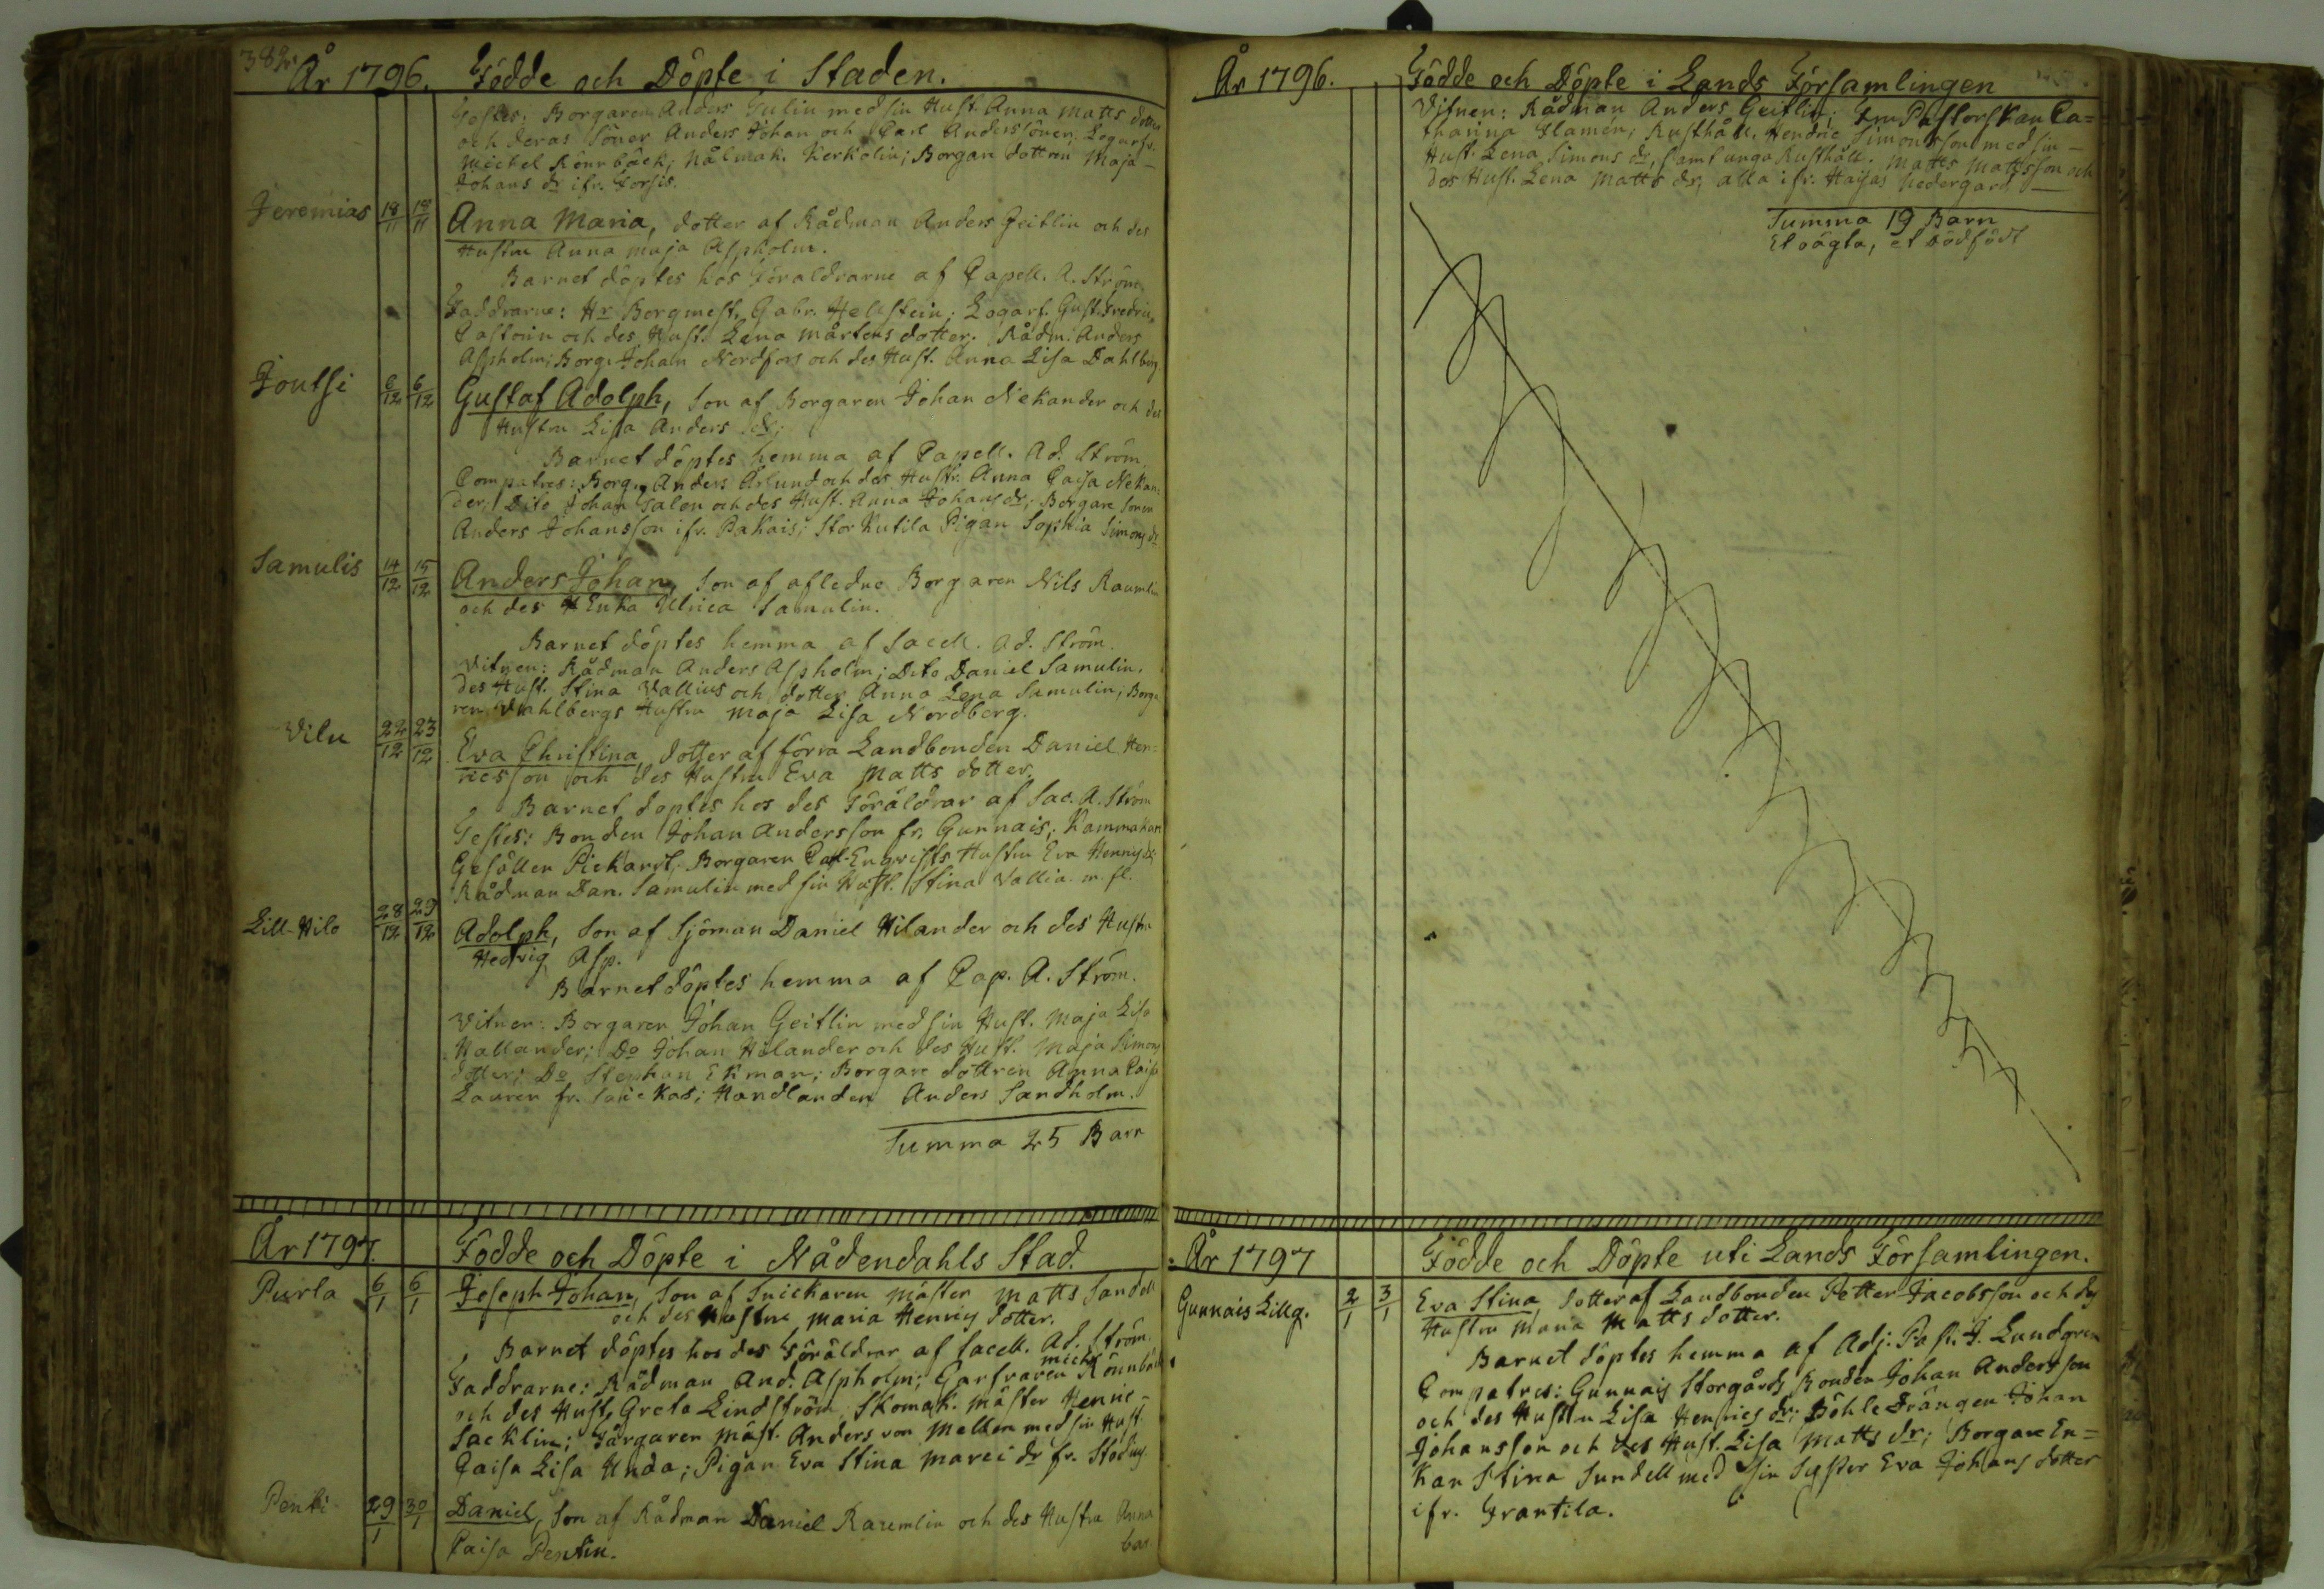 År 1796. Födde och Döpte i Staden.
Testes: Borgaren Anders Julin med sin Hust. Anna Matts dotter
och deras Söner Anders Johan och Carl Anderssöner; Logarfv.
Michel Rönnbäck; Nålmak. Kerkolin; Borgare dottren Maja
Johans dr ifr. Forsis.
Jeremias 18/11 18/11 Anna Maria, dotter af Rådman Anders Geitlin och des
Hustru Anna Maja Aspholm.
Barnet döptes hos Föräldrarne af Capell. A. Ström.
Faddrarne: Hr Borgmest. Gabr. Helsstein; Logarf. Gust. Fredric
Castorin och des Hust. Lena Mårtens dotter. Rådm. Anders
Aspholm; Borg. Johan Nordfors och des Hust. Anna Lisa Dahlberg
Joutsi 6/12 6/12 Gustaf Adolph, Son af Borgaren Johan Nekander och des
Hustru Lisa Anders dr;
Barnet döptes hemma af Capell. Ad. Ström.
Compatres: Borg. Anders Åklund och des Hustr. Anna Caisa Nekan-
der; Dito Johan Salon och des Hust. Anna Johans dr; Borgare Sonen
Anders Johansson ifr. Pakais; Stor Kutila Pigan Sophia Simons dr
Samulis 14/12 15/12 Anders Johan, Son af afledne Borgaren Nils Raumlin
och des Enka Ulrica Samulin.
Barnet döptes hemma af Sacell. Ad. Ström.
Vitnen: Rådman Anders Aspholm; Dito Daniel Samulin,
des Hust. Stina Vallius och dotter Anna Lena Samulin; Borga
ren Vahlbergs Hustru Maja Lisa Nordberg.
Vilu 22/12 23/12 Eva Christina, dotter af förra Landbonden Daniel Hen-
ricsson och des Hustru Eva Matts dotter.
Barnet döptes hos des Föräldrar af Sac. A. Ström
Testes: Bonden Johan Andersson fr. Gunnais; Kammakare
Gesällen Pickardt; Borgaren Carl Engvists Hustru Eva Henrics dr;
Rådman Dan. Samulin med sin Hust. Stina Vallia m. fl.
Lill-Hilo 28/12 29/12 Adolph, Son af Sjöman Daniel Hilander och des Hustru
Hedvig Asp.
Barnet döptes hemma af Cap. A. Ström.
Vitnen: Borgaren Johan Geitlin med sin Hust. Maja Lisa
Hallander; Do Johan Hilander och des Hust. Maja Simons
dotter; Do Stephan Ekman; Borgare dottren Anna Caisa
Lauren fr. Handlanden Anders Sandholm.
Summa 25 Barn
År 1797. Födde och Döpte i Nådendahls Stad.
Purla 6/1 6/1 Joseph Johan, Son af Snickaren Mäster Matts Sandell
och des Hustru Maria Henrics dotter.
Barnet döptes hos des Föräldrar af Sacell. Ad. Ström.
Faddrarne: Rådman And. Aspholm; Garfvaren Mich. Rönnbäck
och des Hust. Greta Lindström; Skomak. Mäster Henric
Sacklin; Färgaren Mäst. Anders von Mellen med sin Hust.
Caisa Lisa Unda; Pigan Eva Stina Marci dr fr.
Penti 29/1 30/1 Daniel, Son af Rådman Daniel Raumlin och des Hustru Anna
Caisa Pentin.
bar
År 1796. Födde och Döpte i Lands Församlingen
Vitnen: Rådman Anders Geitlin; Fru Pastorskan Ca-
tharina Flamén; Rusthåll. Hendric Simonsson med sin
Hust. Lena Simons dr, samt unga Rusthåll. Matts Mattsson och
des Hust. Lena Matts dr, alla ifr. Haijas Nedergård
Summa 19 Barn
Et oägta, et dödfödt
År 1797 Födde och Döpte uti Lands Församlingen.
Gunnais Lillg. 2/1 3/1 Eva Stina, dotter af Landbonden Petter Jacobsson och des
Hustru Maria Matts dotter.
Barnet döptes hemma af Adj. Past. J. Lundgren
Compatres: Gunnais Storgårds Bonden Johan Andersson
och des Hustru Lisa Henrics dr; Böhle Drängen Johan
Johansson och des Hust. Lisa Matts dr; Borgare En-
kan Stina Sundell med sin Syster Eva Johans dotter
ifr. Frantila.